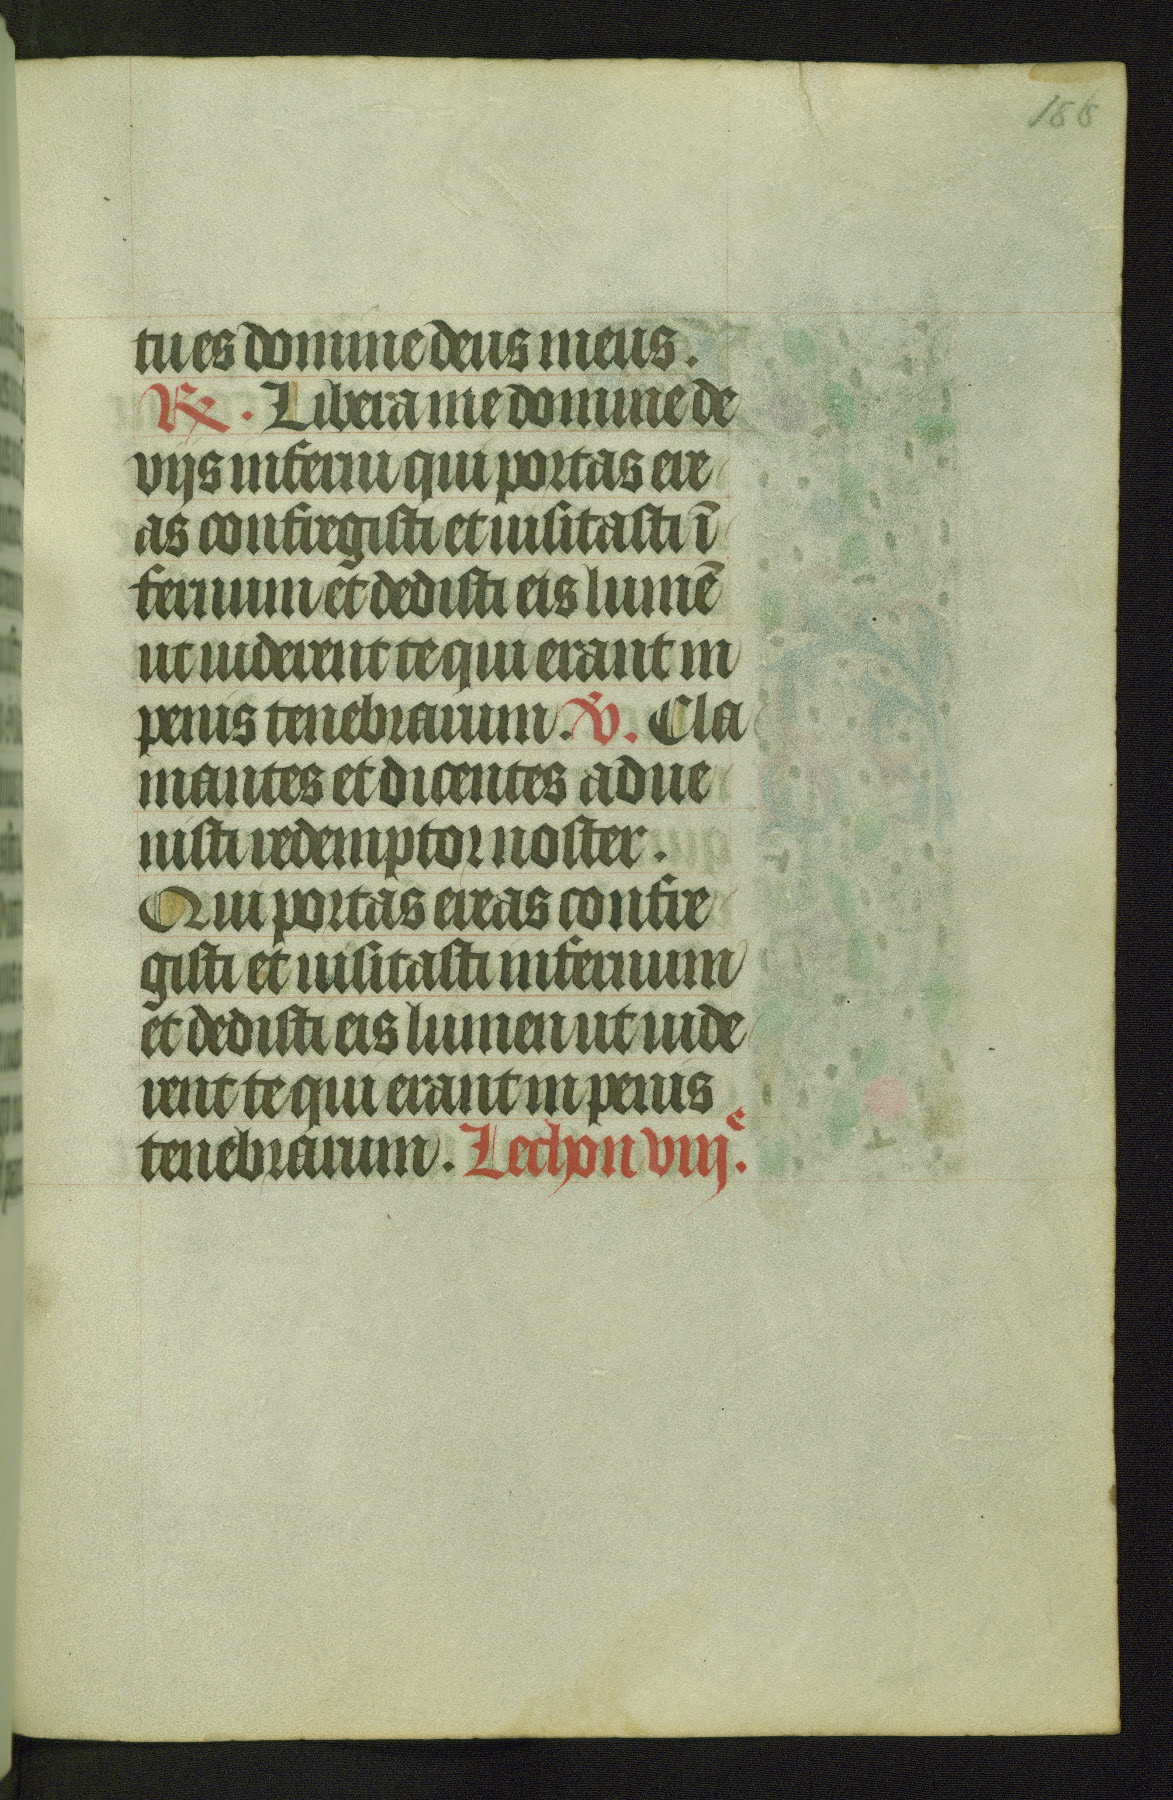 188
tu es domine deus meus.
R. Libera me domine de
viis inferni qui portas ere
as confregisti et uisitasti ī
fernum et dedisti eis lumē
ut uiderent te qui erant in
penis tenebrarum. V. Cla
mantes et dicentes adue
nisti redemptor noster.
Qui portas ereas confre
gisti et uisitasti infernum
et dedisti eis lumen ut uide
rent te qui erant in penis
tenebrarum. Lechon viijᵉ.